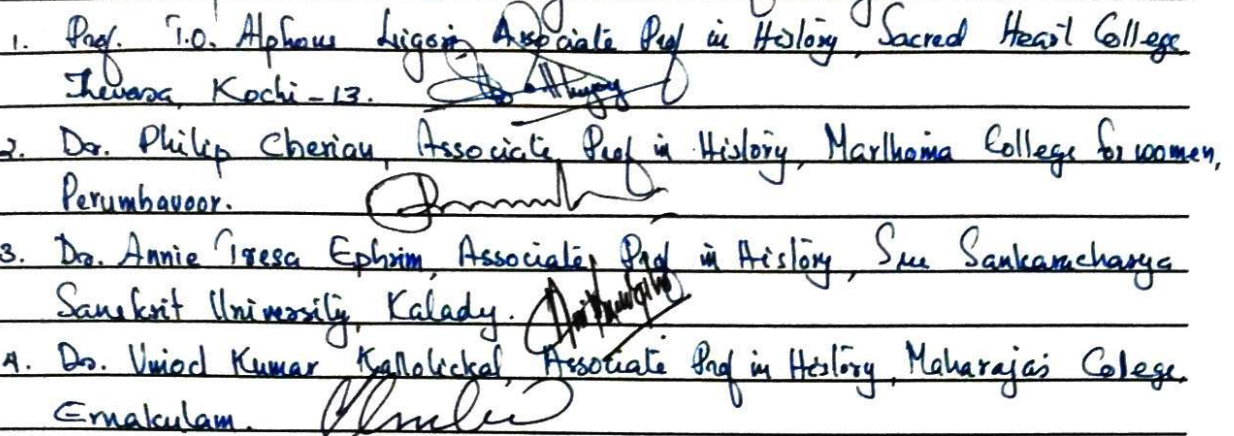 1. Prof. T.O. Alphons Ligori, Associate Prof in History, Sacred Heart College
Thevara, Kochi - 13.
2. Dr. Philip Cherian, Associate Prof in History, Marthoma College for women,
Perumbavoor.
3. Dr. Annie Tresa Ephrim, Associate Prof in History, Sree Sankaracharya
Sanskrit University, Kalady.
4. Dr. Vinod Kumar Kallolickal, Associate Prof in History, Maharajas College,
Ernakulam.